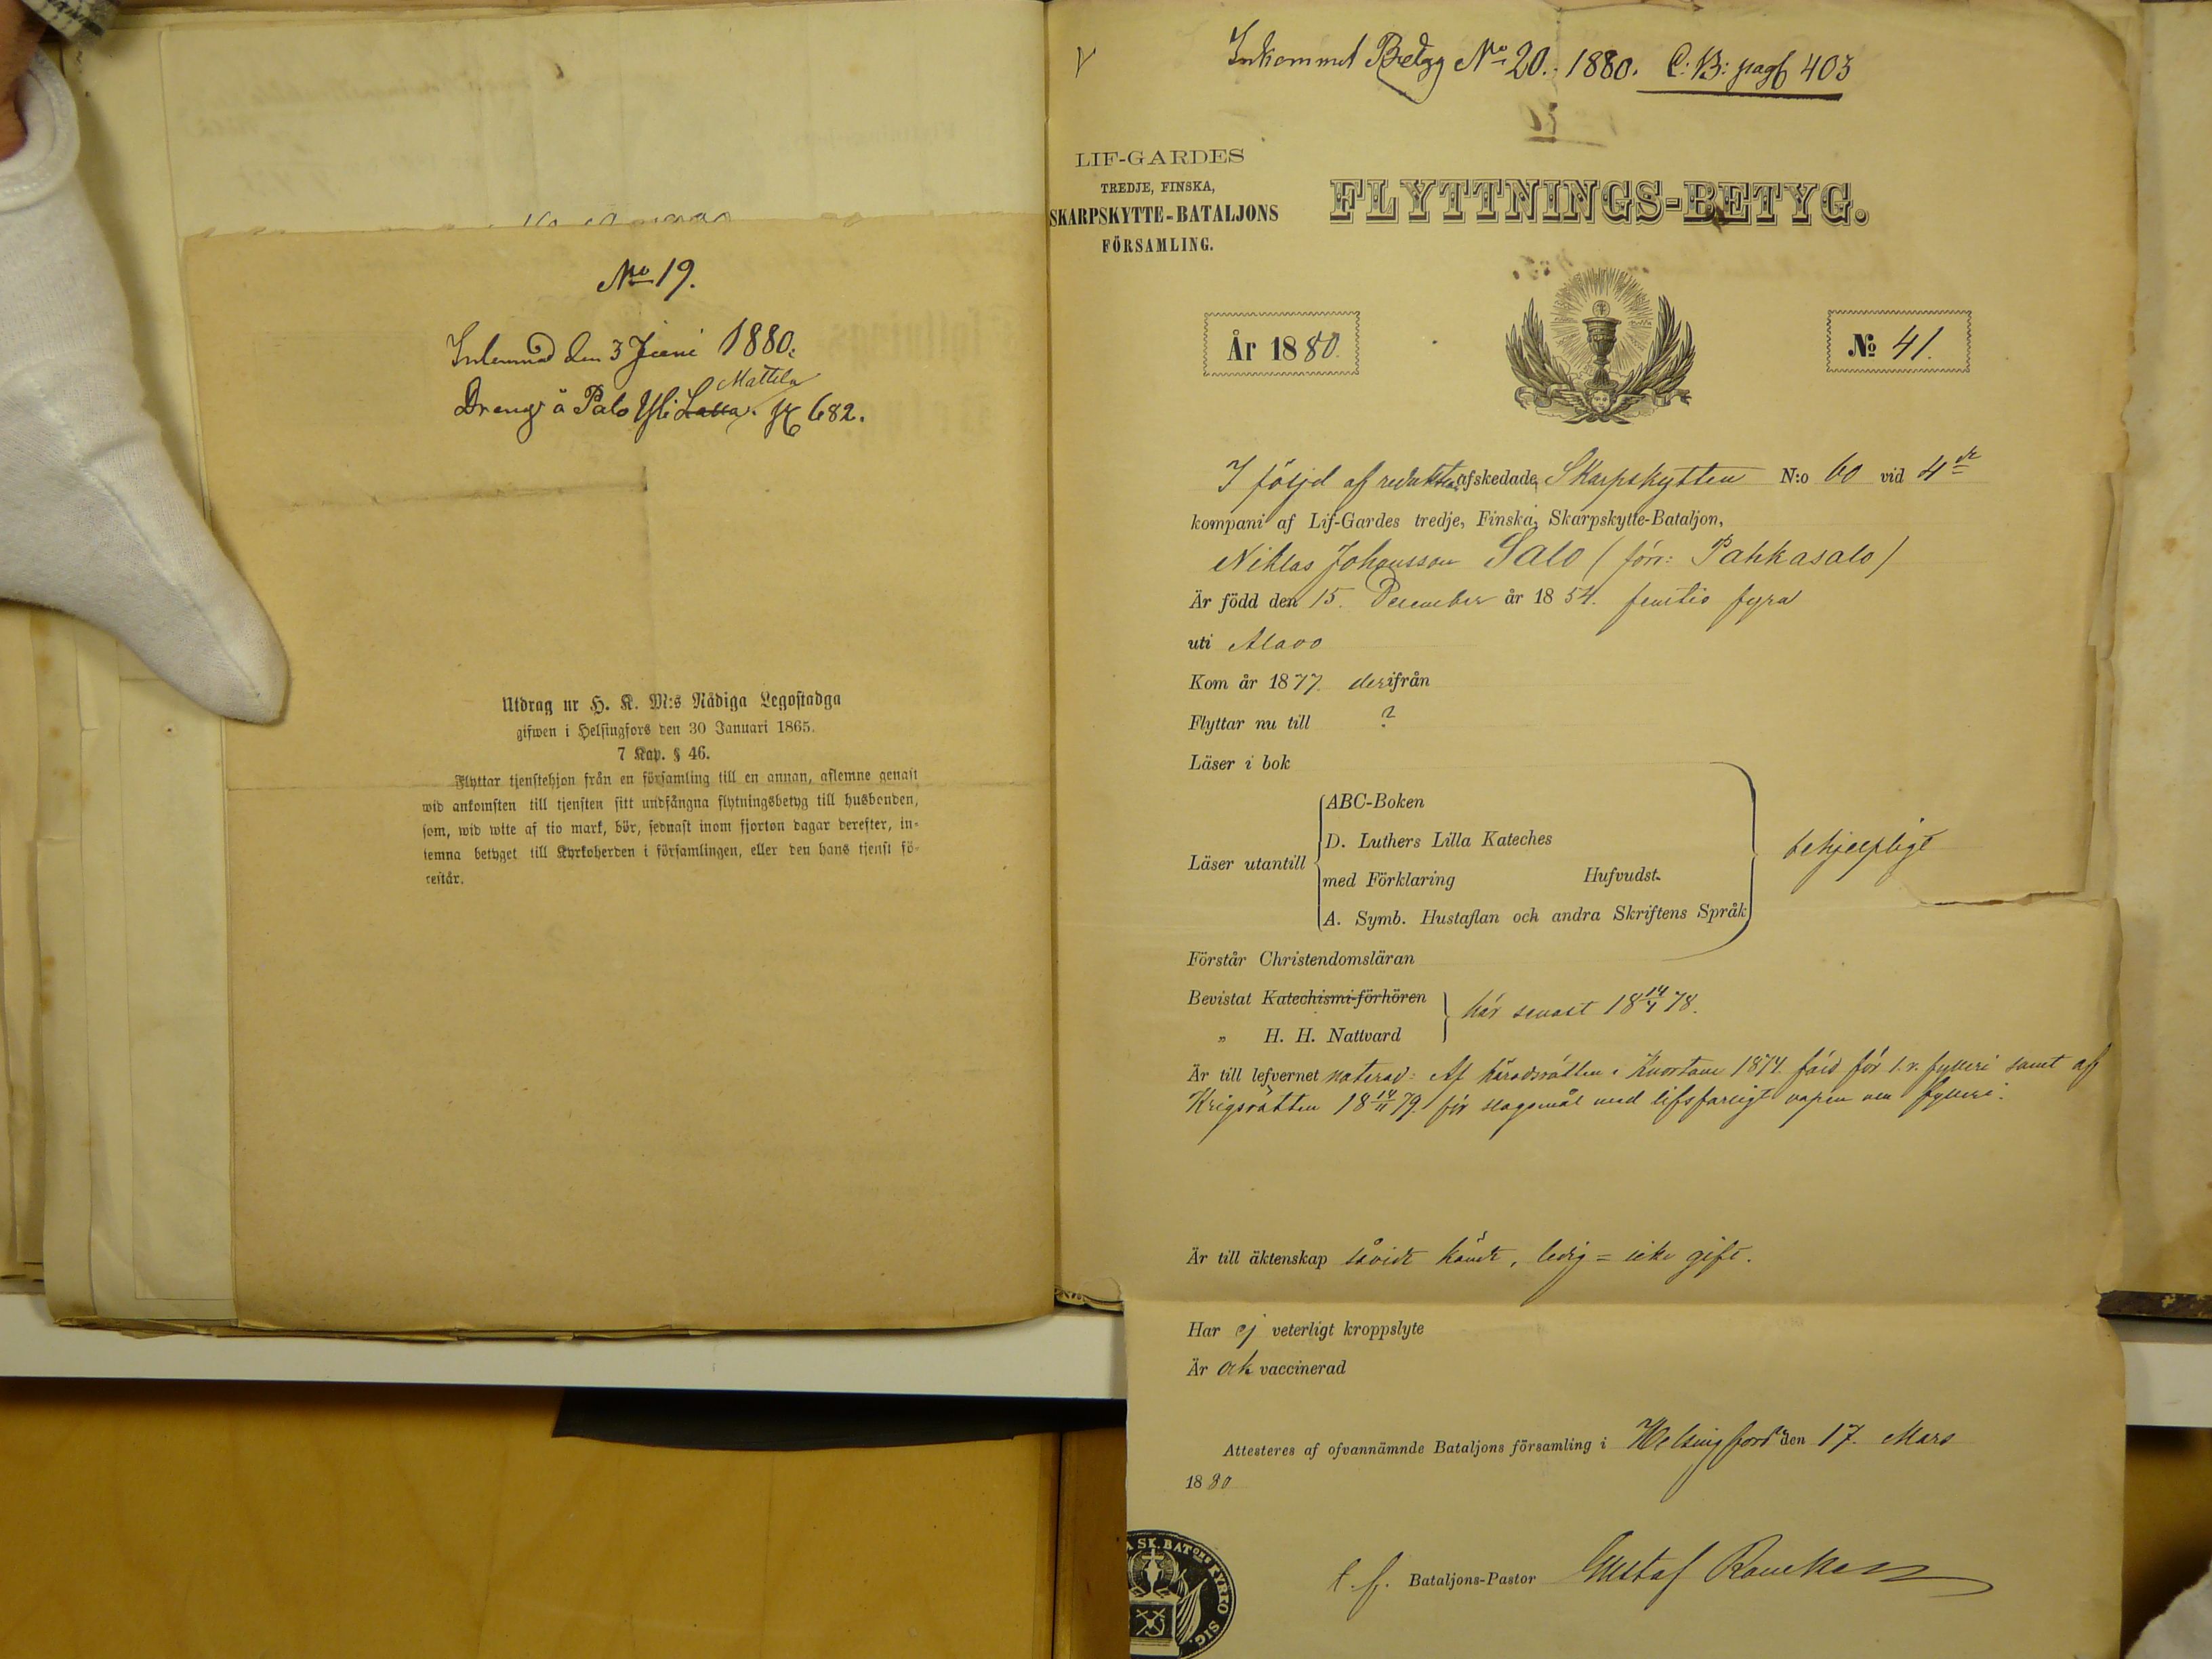 No 19.
Inlemnad den 3 Juni 1880.
Mattila
Dreng å Palo Yli Lassa. pg 682.
Utdrag ur H. K. M:s Nådiga Legostadga
gifwen i Helsingfors den 30 Januari 1865.
7 Kap. § 46.
Flyttar tjenstehjon från en församling till en annan, aflemne genast
wid ankomsten till tjensten sitt undfångna flytningsbetyg till husbonden,
som, wid wite af tio mark, bör, sednast inom fjorton dagar derefter, in-
lemna betyget till Kyrkoherden i församlingen, eller den hans tjenst fö-
restår.
Inkommet Betyg No 20. 1880. C: B: pag 403
LIF-GARDES
TREDJE, FINSKA,
SKARPSKYTTE-BATALJONS
FÖRSAMLING.
FLYTTNINGS-BETYG.
År 1880.
No 41.
I följd af reduktion afskedade, Skarpskytten N:o 60 vid 4de
kompani af Lif-Gardes tredje, Finska, Skarpskytte-Bataljon,
Niklas Johansson Salo (förr: Pahkasalo)
Är född den 15. December år 1854. femtio fyra
uti Alavo
Kom år 1877. derifrån
Flyttar nu till ?
Läser i bok
ABC-Boken
D. Luthers Lilla Kateches
Läser utantill
med Förklaring Hufvudst.
A. Symb. Hustaflan och andra Skriftens Språk
behjelpligt
Förstår Christendomsläran
Bevistat Katechismi-förhören
„ H. H. Nattvard
här senast 18 14/4 78.
Är till lefvernet noterad: Af häradsrätten i Kuortane 1874. fäld för 1. r. fylleri samt af
Krigsrätten 18 14/11 79. för slagsmål med lifsfarligt vapen och fylleri.
Är till äktenskap såvidt kändt, ledig = icke gift.
Har ej veterligt kroppslyte
Är ock vaccinerad
Attesteres af ofvannämnde Bataljons församling i Helsingfors den 17. Mars
1880
t. f. Bataljons-Pastor Gustaf
A SK. BATONS KYRKO SIG.